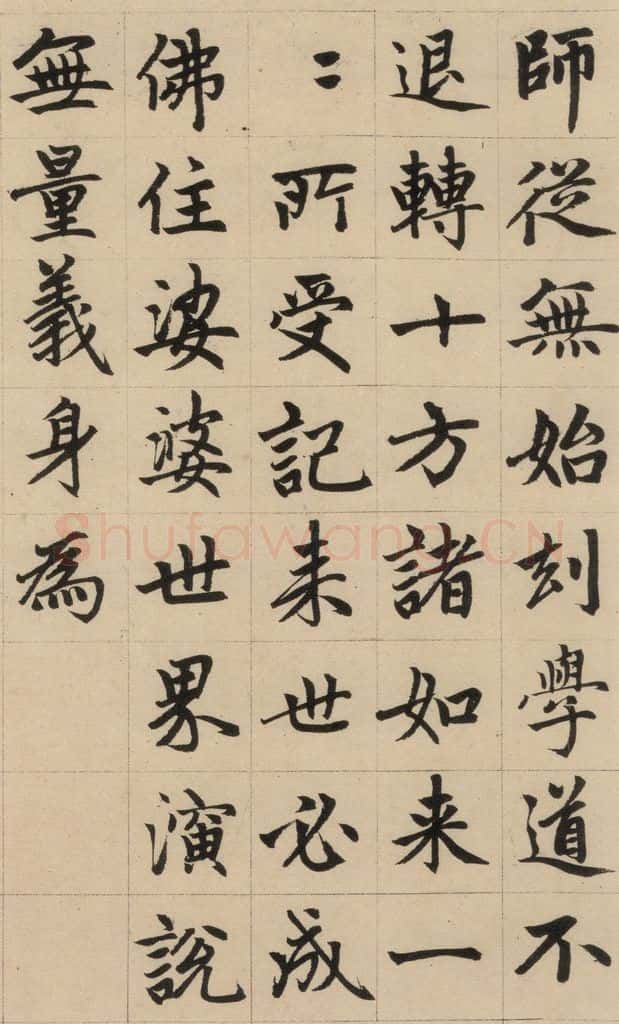 師從無始刦學道不
退轉十方諸如来一
〻所受記来世必成
佛住娑婆世界演說
無量義身為
Shufawang.CN